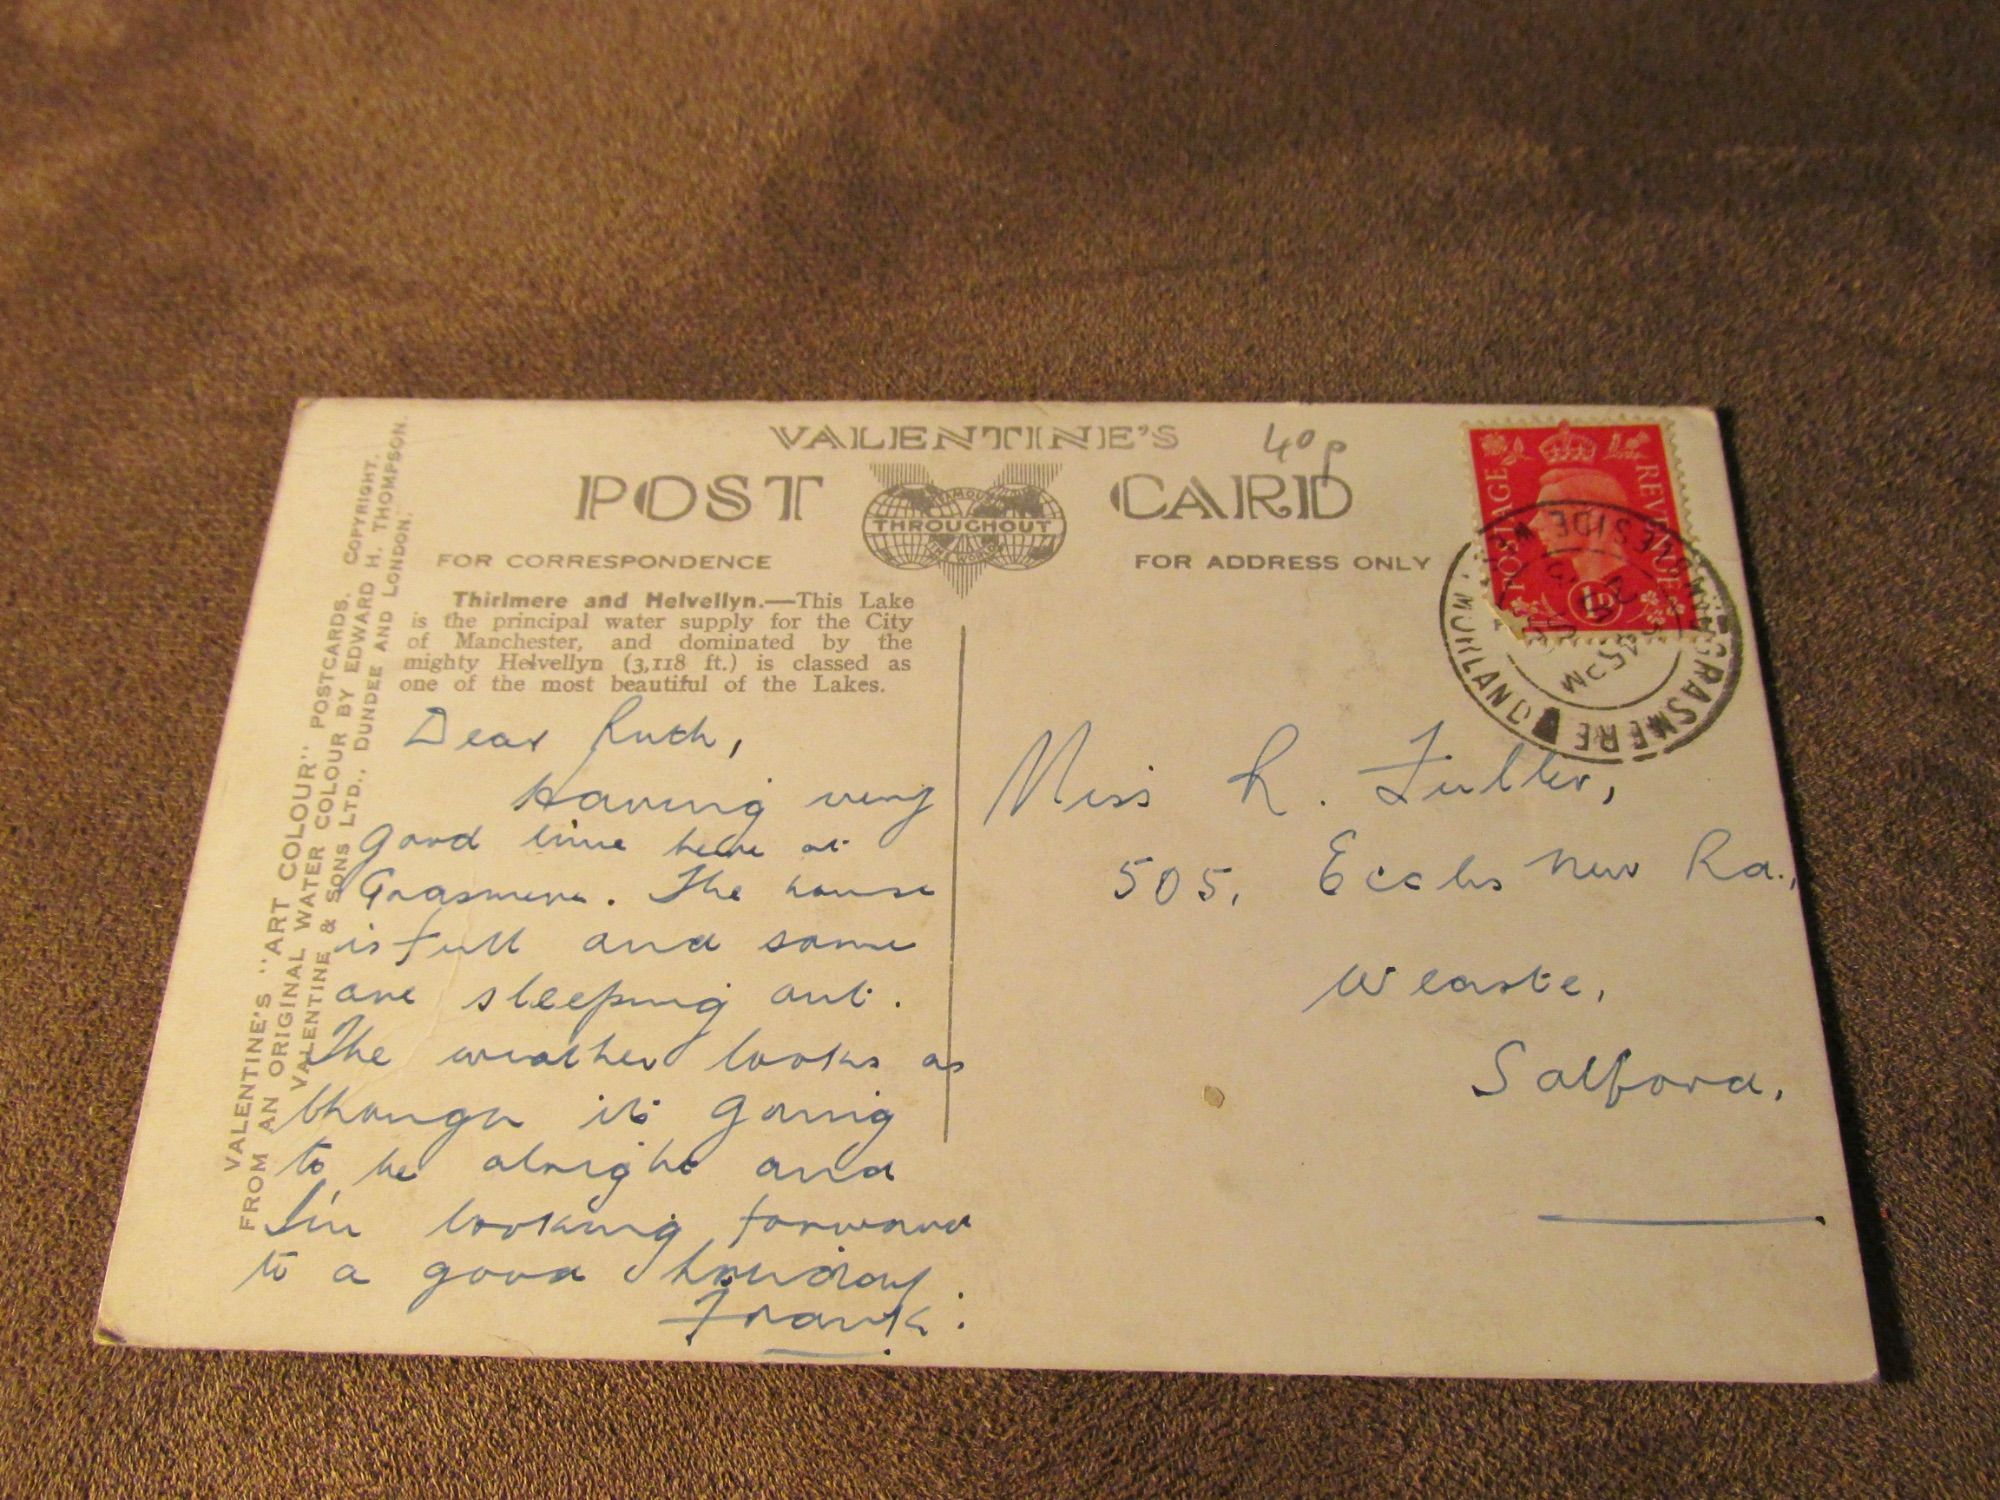 VALENTINE'S
40p
POST CARD
FAMOUS
THROUGHOUT
THE WORLD
FOR CORRESPONDENCE
FOR ADDRESS ONLY
VALENTINE'S "ART COLOUR" POSTCARDS. COPYRIGHT.
FROM AN ORIGINAL WATER COLOUR BY EDWARD H. THOMPSON.
VALENTINE & SONS LTD., DUNDEE AND LONDON.
Thirlmere and Helvellyn.—This Lake
is the principal water supply for the City
of Manchester, and dominated by the
mighty Helvellyn (3,118 ft.) is classed as
one of the most beautiful of the Lakes.
Dear Ruth,
Having very
good time here at
Grasmere. The house
is full and some
are sleeping out.
The weather looks as
though it's going
to be alright and
I'm looking forward
to a good holiday.
Frank.
POSTAGE
REVENUE
1D
GRASMERE
AMBLESIDE
45 PM
Miss R. Fuller,
505, Eccles New Rd.,
Weaste,
Salford,